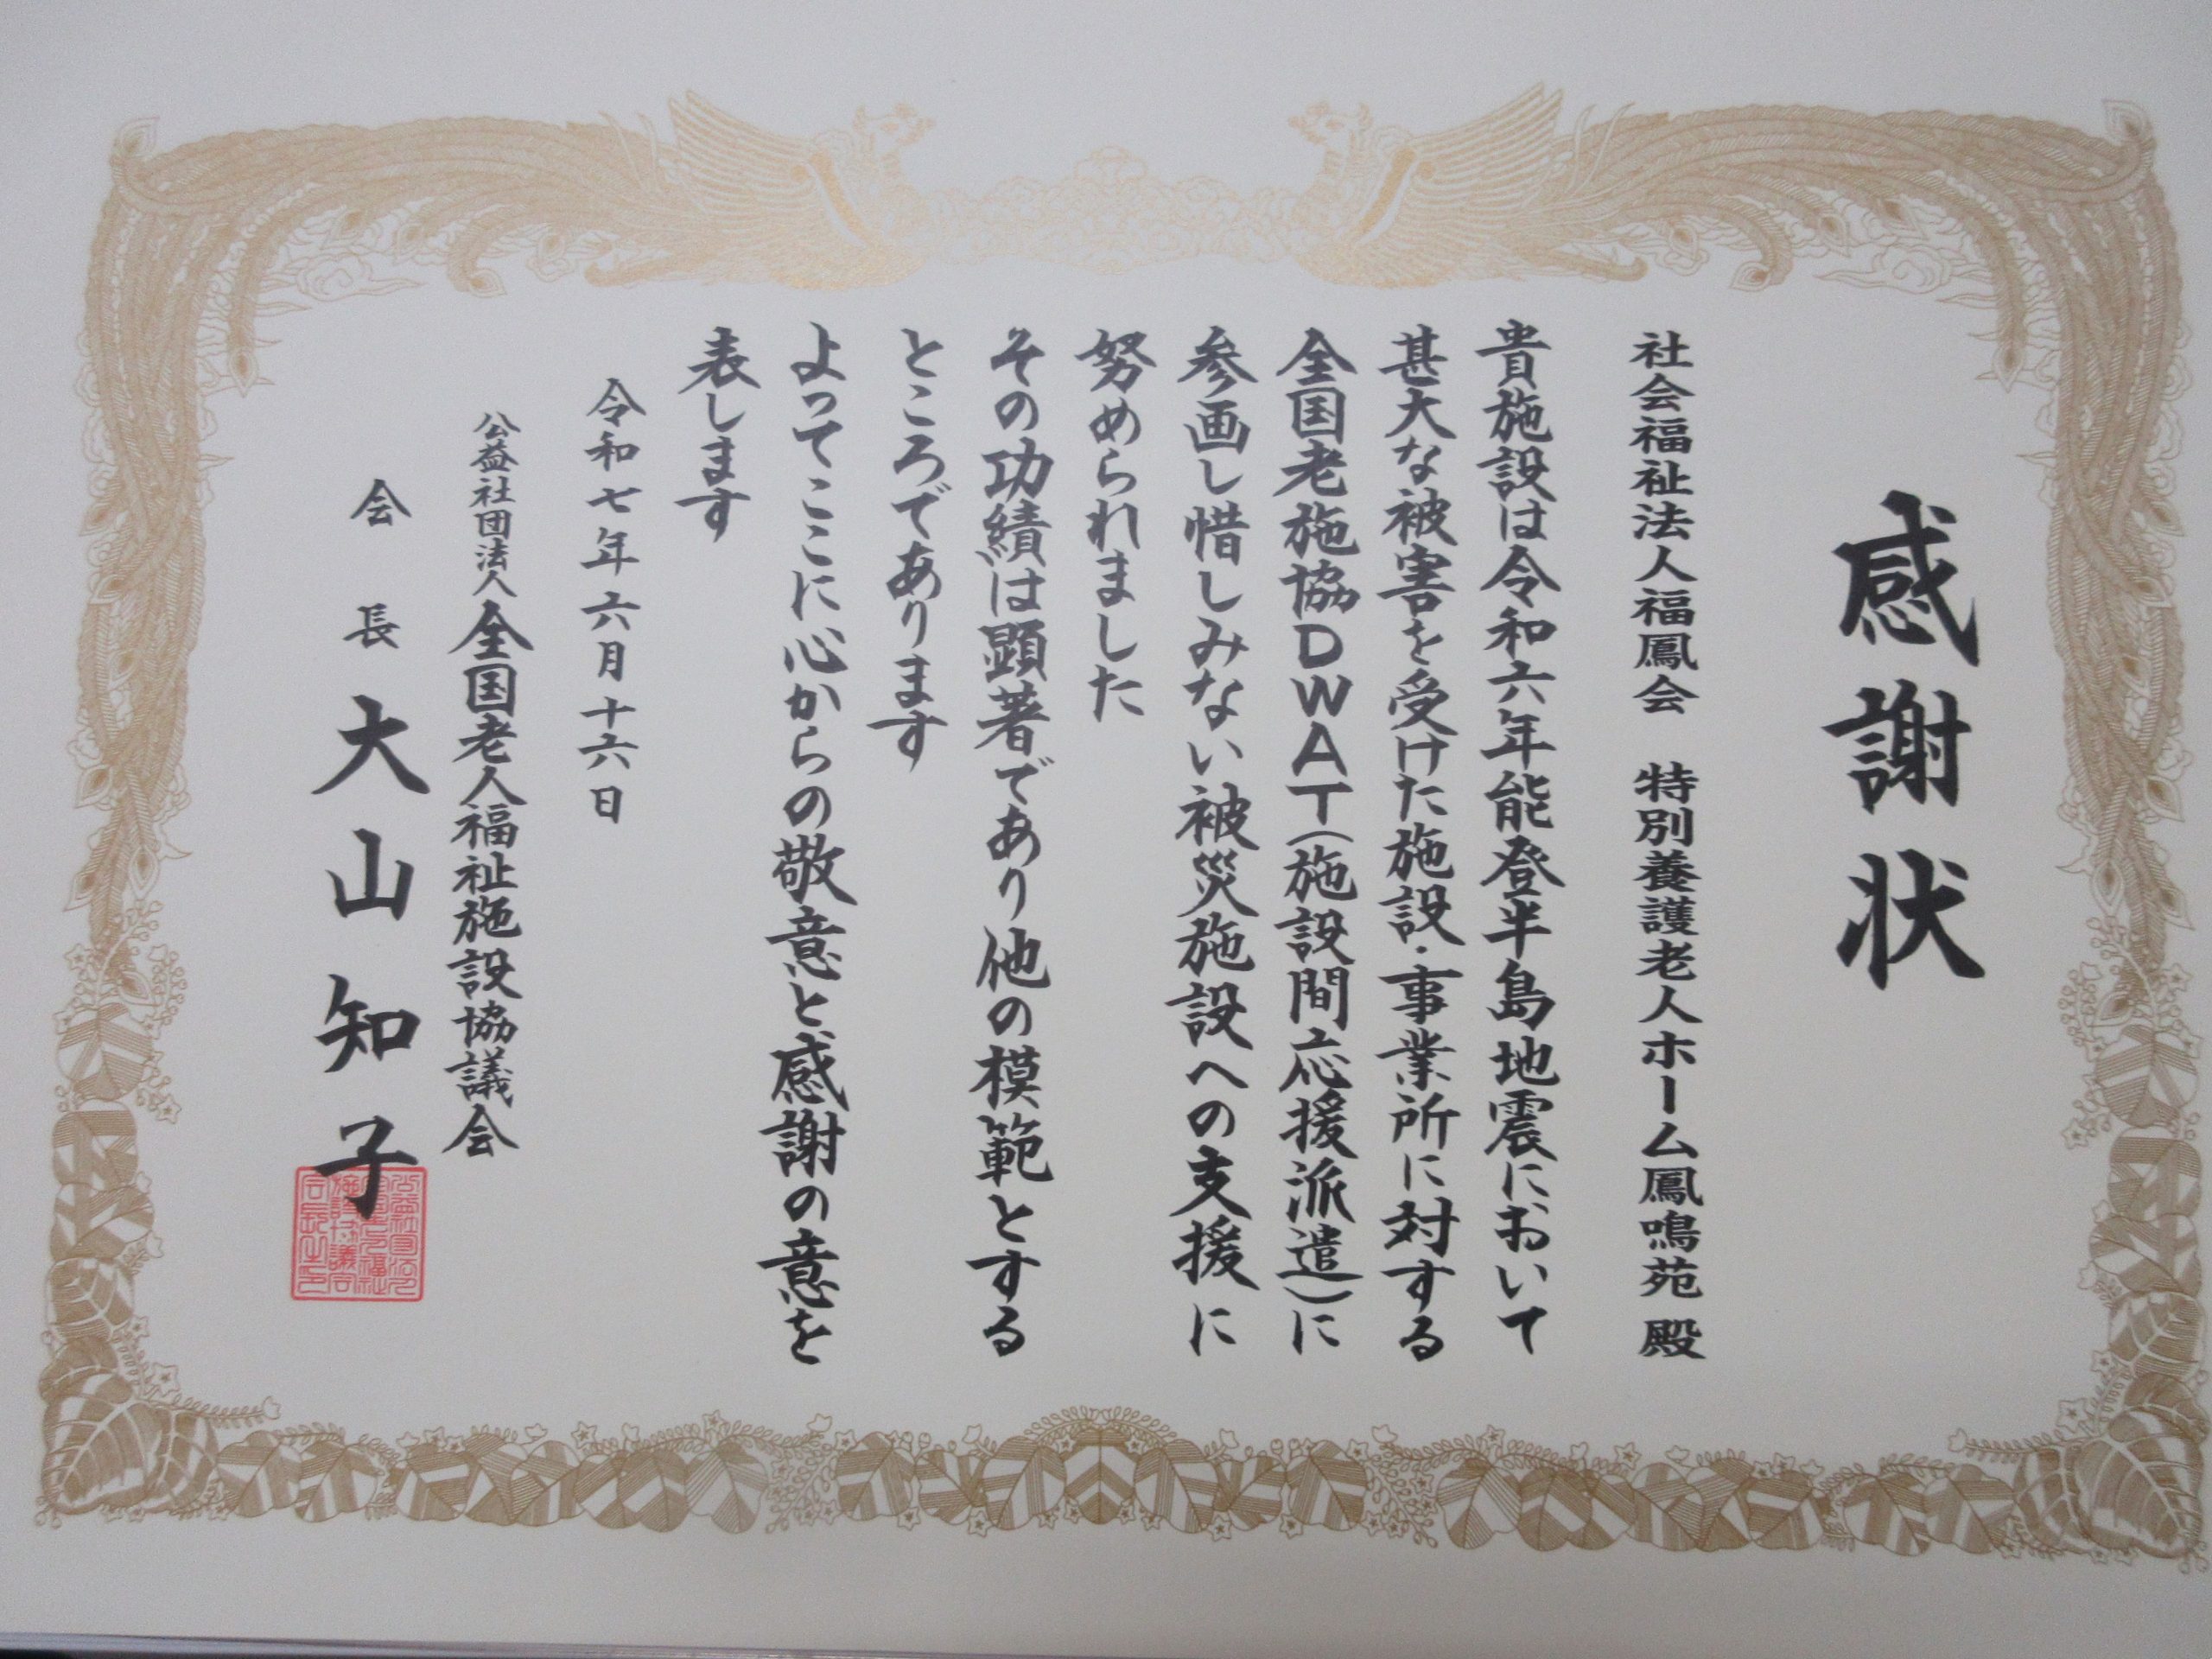 感謝状
社会福祉法人福鳳会　特別養護老人ホーム鳳鳴苑 殿
貴施設は令和六年能登半島地震において
甚大な被害を受けた施設・事業所に対する
全国老施協DWAT(施設間応援派遣)に
参画し惜しみない被災施設への支援に
努められました
その功績は顕著であり他の模範とする
ところであります
よってここに心からの敬意と感謝の意を
表します
令和七年六月十六日
公益社団法人全国老人福祉施設協議会
会長 大山知子